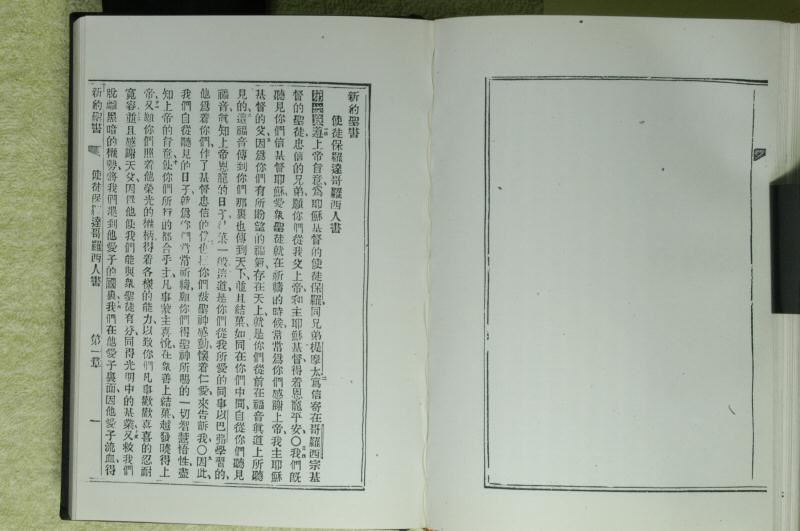 新約聖書
使徒保羅達哥羅西人書
遵上帝旨意、爲耶穌基督的使徒保羅、同兄弟提摩太、爲信寄在哥羅西宗基
督的聖徒、忠信的兄弟、願你們從我父上帝、和主耶穌基督、得着恩寵平安〇我們旣
聽見你們信基督耶穌、愛衆聖徒、就在祈禱的時候、常常爲你們感謝上帝、我主耶穌
基督的父、因爲你們有所盼望的福氣、存在天上、就是你們從前在福音眞道上所聽
見的、這福音傳到你們那裏、也傳到天下、並且結菓、如同在你們中間、自從你們聽見
福音、眞知上帝恩寵的日子、結菓一般、這道是你們從我所愛的同事以巴弗學習的、
他爲着你們作了基督忠信的 你們被聖神感動、懷着仁愛、來告訴我〇因此、
我們自從聽見的日子、就爲你們常常祈禱、願你們得聖神所賜的一切智慧悟性、盡
知上帝的旨意、使你們所行的都合乎主、凡事蒙主喜悅、在衆善上結菓、越發曉得上
帝、又願你們照着他榮光的權柄、得着各樣的能力、以致你們凡事歡歡喜喜的忍耐
寬容、並且感謝天父、因爲他使我們能與衆聖徒有分、同得光明中的基業、又救我們
脫離黑暗的權勢、將我們遷到他愛子的國裏、我們在他愛子裏面、因他愛子流血、得
新約聖書 使徒保羅達哥羅西人書 第一章 一